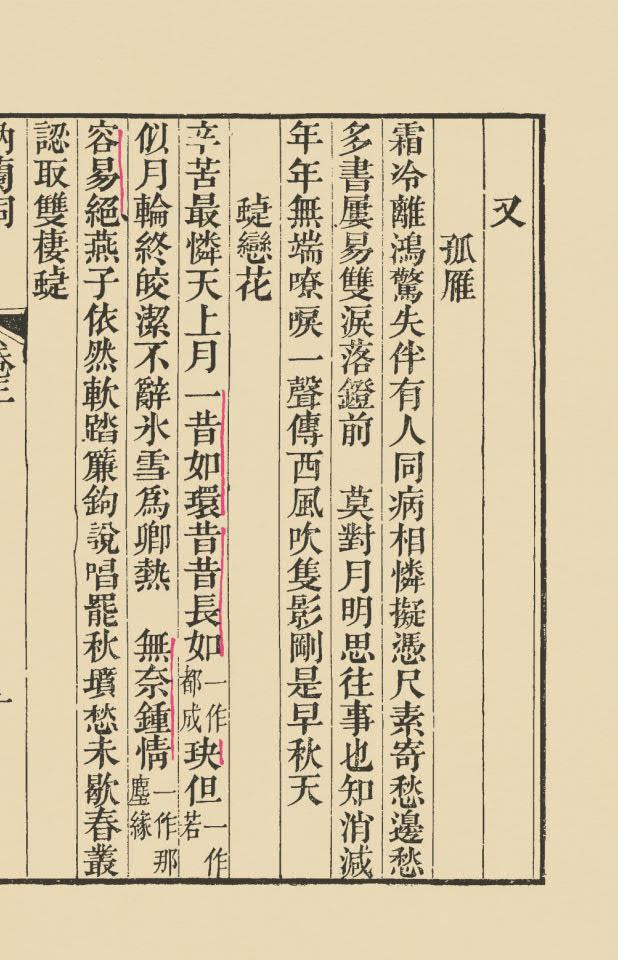 又
孤雁
霜冷離鴻驚失伴有人同病相憐擬憑尺素寄愁邊愁
多書屢易雙淚落鐙前　莫對月明思往事也知消減
年年無端嘹唳一聲傳西風吹隻影剛是早秋天
蜨戀花
辛苦最憐天上月一昔如環昔昔長如一作都成玦但一作若
似月輪終皎潔不辭氷雪爲卿熱　無奈鍾情一作那塵緣
容易絕燕子依然軟踏簾鉤說唱罷秋墳愁未歇春叢
認取雙棲蜨
納蘭詞